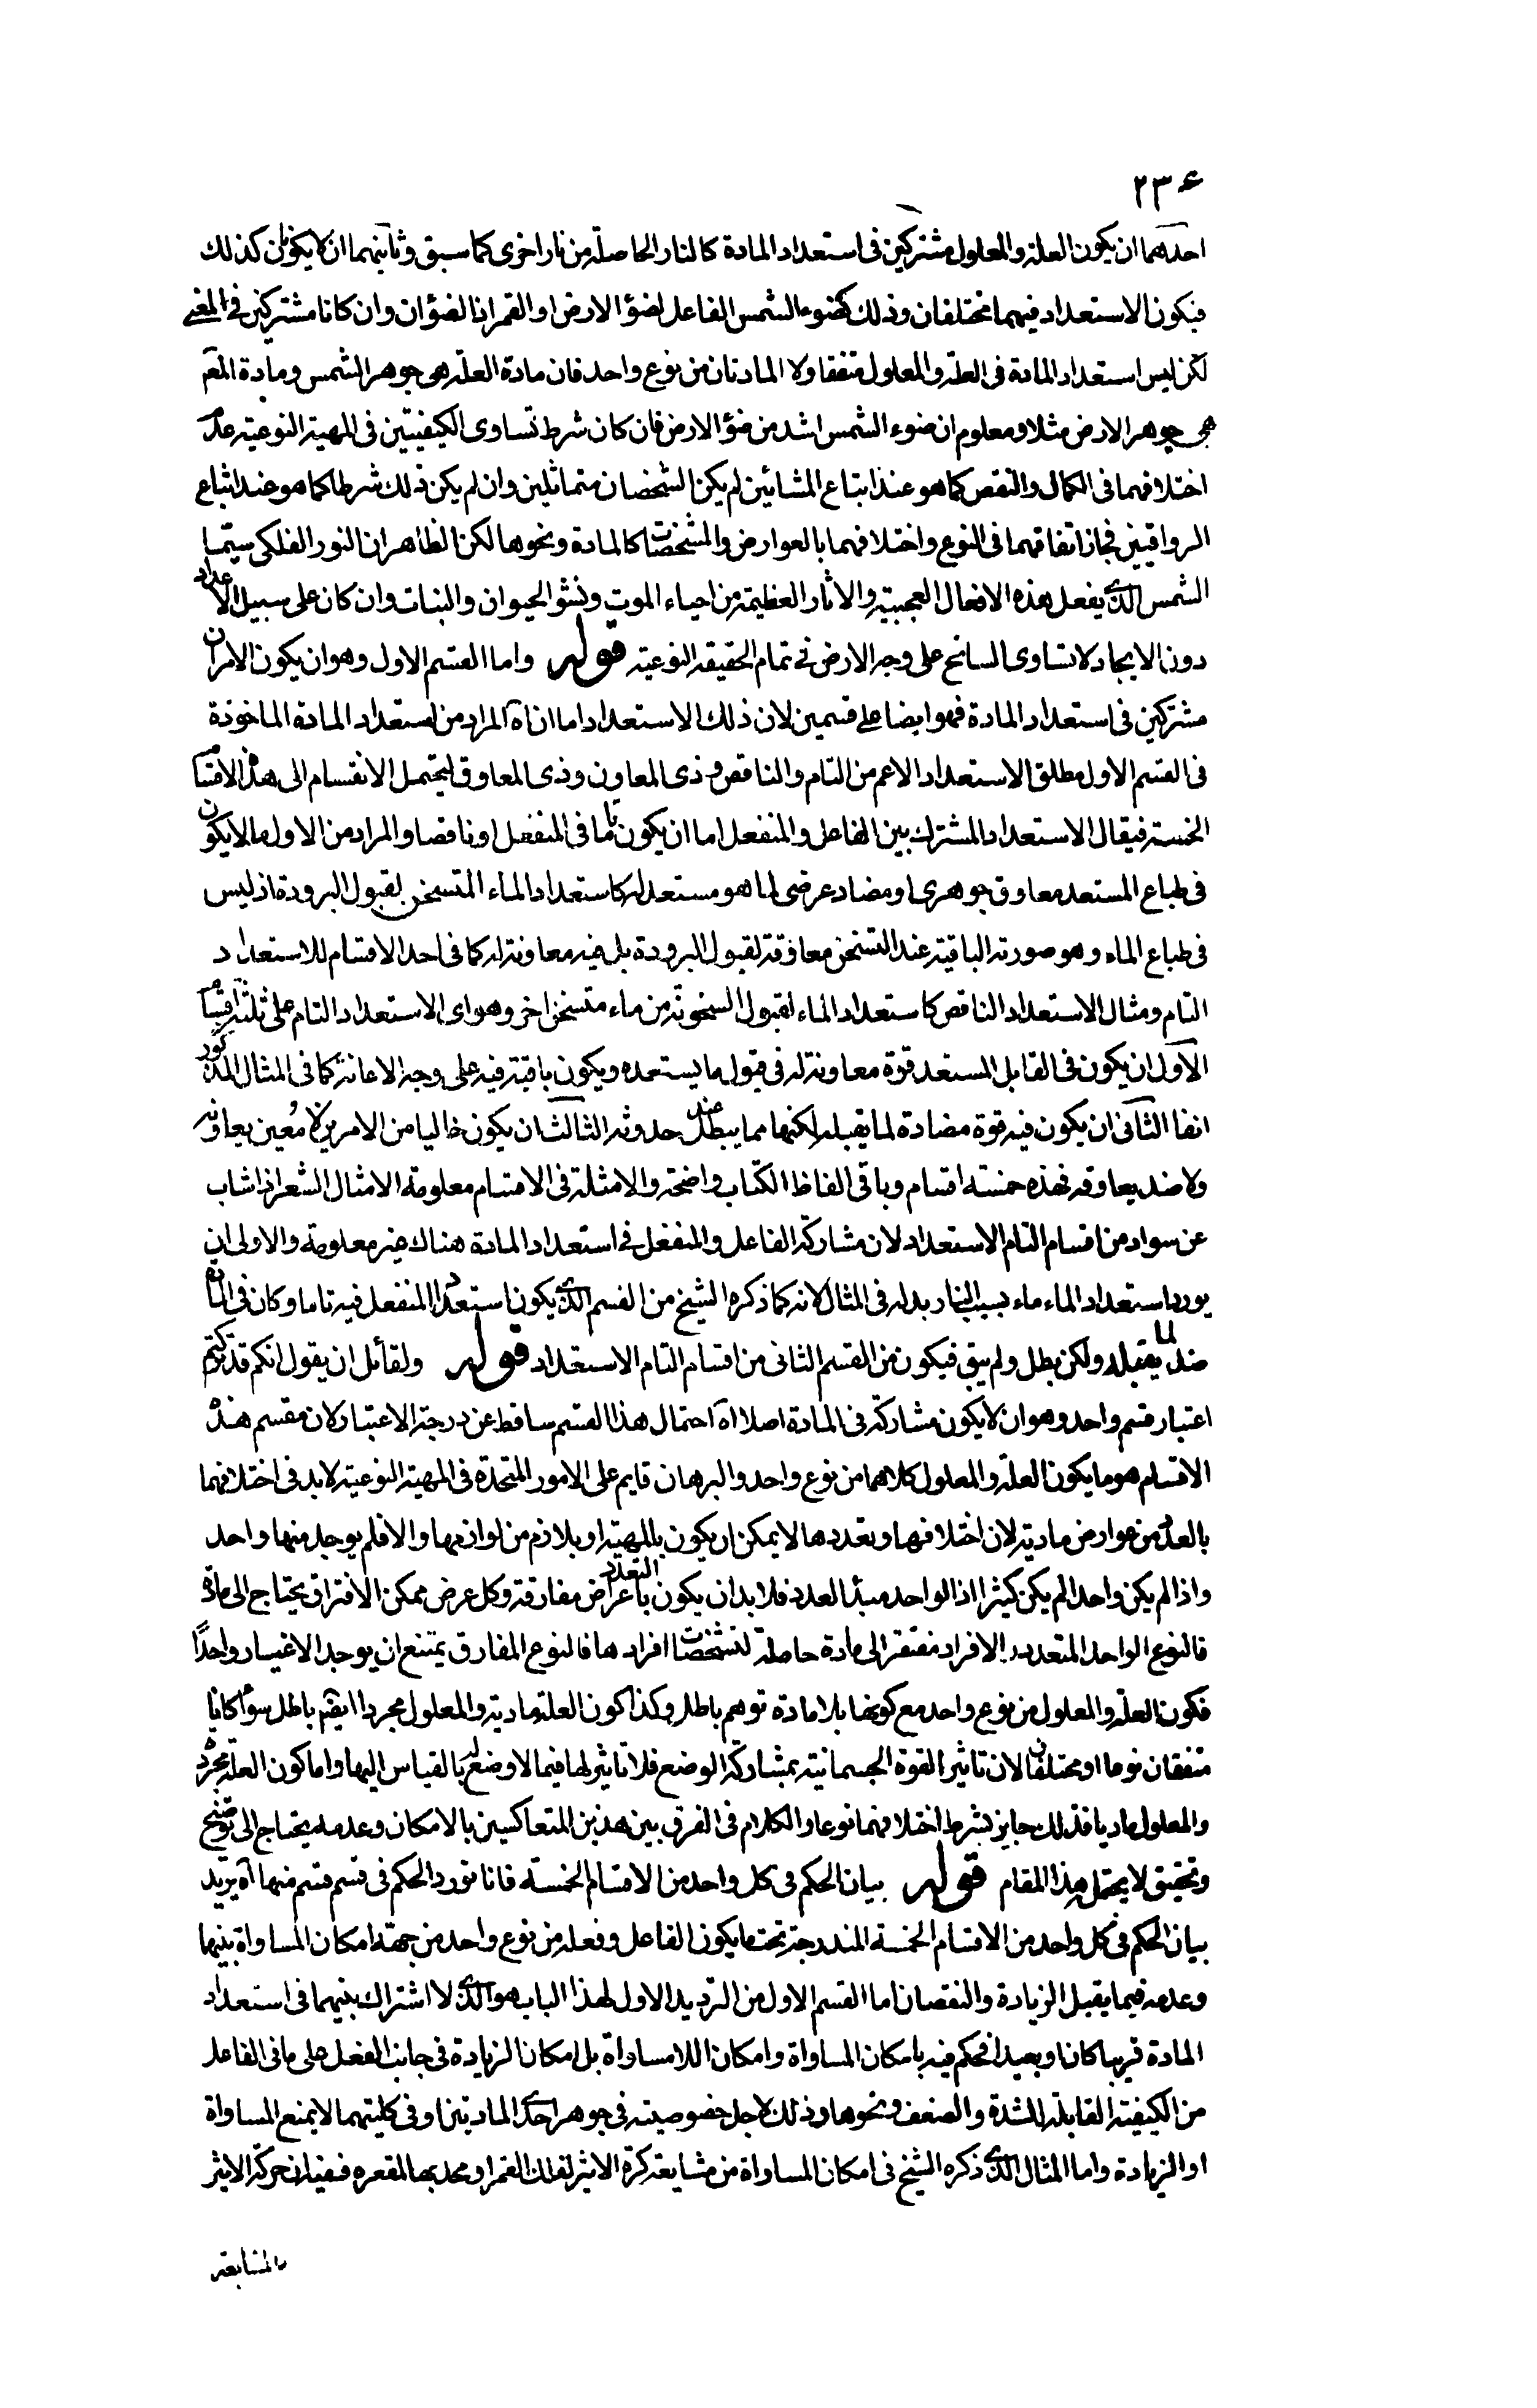 ۲۳۶
احدهما ان يكون العلة والمعلول مشتركين فى استعداد المادة كالنار الحاصلة من نار اخرى كما سبق وثانيهما ان لا يكونا كذلك
فيكون الاستعداد فيهما مختلفان وذلك كضوء الشمس الفاعل لضؤ الارض او القمر فان الضؤان وان كانا مشتركين فى المعنى
لكن ليس استعداد المادة فى العلة والمعلول متفقا ولا المادتان من نوع واحد فان مادة العلة هى جوهر الشمس ومادة المعم
هى جوهر الارض مثلا ومعلوم ان ضوء الشمس اشد من ضؤ الارض فان كان شرط تساوى الكيفيتين فى المهية النوعية عدم
اختلافهما فى الكمال والنقص كما هو عند اتباع المشائين لم يكن الشخصان متماثلين وان لم يكن ذلك شرطا كما هو عند اتباع
الرواقيين فجاز اتفاقهما فى النوع واختلافهما بالعوارض والمشخصات كالمادة ونحوها لكن الظاهر ان النور الفلكى سيما
الشمس الذى يفعل هذه الافعال العجيبة والاثار العظيمة من احياء الموت ونشو الحيوان والنبات وان كان على سبيل الاعداد
دون الايجاد لا تساوى السانح على وجه الارض فى تمام الحقيقة النوعية قوله واما القسم الاول وهو ان يكون الامران
مشتركين فى استعداد المادة فهو ايضا على قسمين لان ذلك الاستعداد اما ان آه المراد من استعداد المادة الماخوذة
فى القسم الاول مطلق الاستعداد الاعم من التام والناقص وذى المعاون وذى المعاوق ليحتمل الانقسام الى هذه الاقسام
الخمسة فيقال الاستعداد المشترك بين الفاعل والمنفعل اما ان يكون تاما فى المنفعل او ناقصا والمراد من الاول ما لا يكون
فى طباع المستعد معاوق جوهرى او مضاد عرضى لما هو مستعد له كاستعداد الماء المتسخن لقبول البرودة اذ ليس
فى طباع الماء وهو صورته الباقية عند التسخن معاوقة لقبول البرودة بل فيه معاونة له كما فى احد الاقسام للاستعداد
التام ومثال الاستعداد الناقص كاستعداد الماء لقبول السخونة من ماء متسخن اخر وهو اى الاستعداد التام على ثلثة اقسام
الاول ان يكون فى القابل المستعد قوة معاونة له فى قبول ما يستعده ويكون باقية فيه على وجه الاعانة كما فى المثال المذكور
انفا الثانى ان يكون فيه قوة مضادة لما يقبله لكنها مما يبطل عند حدوثه الثالث ان يكون خاليا من الامرين لا مُعين يعاونه
ولا ضد يعاوقه فهذه خمسة اقسام وباقى الفاظ الكتاب واضحة والامثلة فى الاقسام معلومة الا مثال الشعر اذا شاب
عن سواد من اقسام التام الاستعداد لان مشاركة الفاعل والمنفعل فى استعداد المادة هناك غير معلومة والاولى ان
يورد استعداد الماء ماء بسبب النار بدله فى المثال لانه كما ذكره الشيخ من القسم الذى يكون استعداد المنفعل فيه تاما وكان فى المادة
ضد لما يقبله ولكن بطل ولم يبق فيكون من القسم الثانى من اقسام التام الاستعداد قوله ولقائل ان يقول انكم قد تركتم
اعتبار قسم واحد وهو ان لا يكون مشاركة فى المادة اصلا اه احتمال هذا القسم ساقط عن درجة الاعتبار لان مقسم هذه
الاقسام هو ما يكون العلة والمعلول كلاهما من نوع واحد والبرهان قايم على الامور المتحدة فى المهية النوعية لا بد فى اختلافهما
بالعدد من عوارض مادية لان اختلافها وتعددها لا يمكن ان يكون بالمهية او بلازم من لوازمها والا فلم يوجد منها واحد
واذا لم يكن واحدا لم يكن كثيرا اذ الواحد مبدأ العدد فلا بد ان يكون التعدد باعراض مفارقة وكل عرض ممكن الافتراق يحتاج الى مادة
فالنوع الواحد المتعدد الافراد مفتقر الى مادة حاملة لتشخصات افرادها فالنوع المفارق يمتنع ان يوجد الا غيسار واحدًا
فكون العلة والمعلول من نوع واحد مع كونها بلا مادة توهم باطل وكذا كون العلة مادية والمعلول مجردا ايضم باطل سواء كانا
متفقان نوعا او مختلفان لان تاثير القوة الجسمانية بمشاركة الوضع فلا تاثير لها فيما لا وضع له بالقياس اليها واما كون العلة مجردة
والمعلول ماديا فذلك جايز بشرط اختلافهما نوعا والكلام فى الفرق بين هذين المتعاكسين بالامكان وعدمه يحتاج الى توضيح
وتحقيق لا يحتمل هذا المقام قوله بيان الحكم فى كل واحد من الاقسام الخمسة فانا نورد الحكم فى قسم قسم منها آه يريد
بيان الحكم فى كل واحد من الاقسام الخمسة المندرجة تحت ما يكون الفاعل وفعله من نوع واحد من جهة امكان المساواة بينهما
وعدمه فيما يقبل الزيادة والنقصان اما القسم الاول من الترديد الاول لهذا الباب هو الذى لا اشتراك بينهما فى استعداد
المادة قريبا كان او بعيدا فحكم فيه بامكان المساواة وامكان اللامساواة بل امكان الزيادة فى جانب الفعل على ما فى الفاعل
من الكيفية القابلة للشدة والضعف ونحوها وذلك لاجل خصوصية فى جوهر احدى المادتين او فى كليتهما لا يمنع المساواة
او الزيادة واما المثال الذى ذكره الشيخ فى امكان المساواة من مشايعة كرة الاثير لفلك القمر او محدبها لمقعره ففيه ان حركة الاثير
بالمشايعة